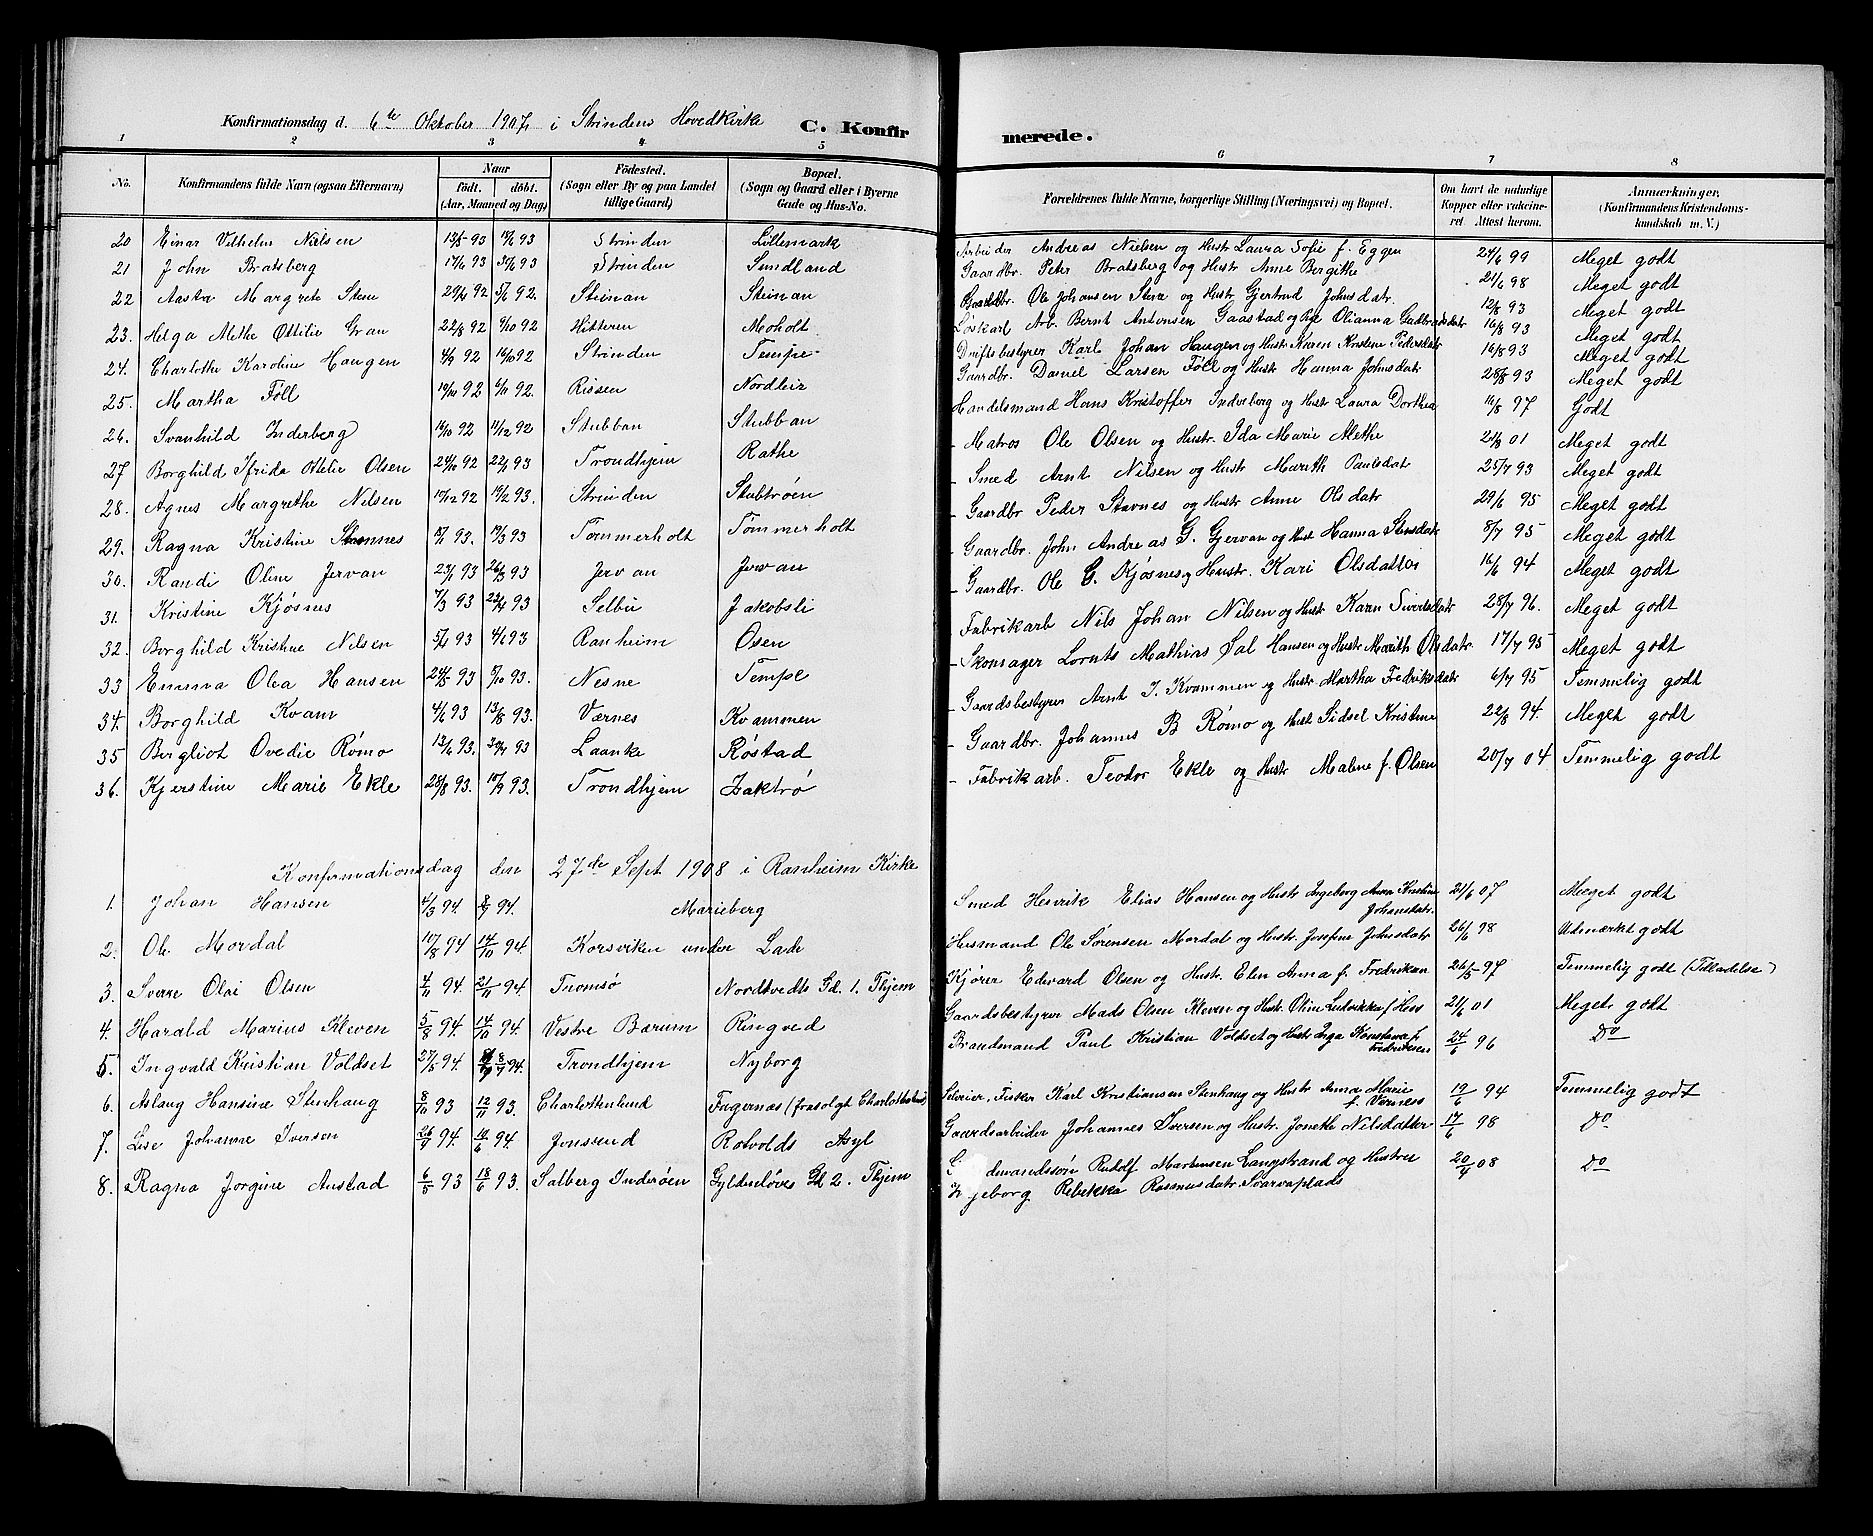 Konfirmationsdag d. 6te Oktober 1907 i Strindens Hovedkirke C. Konfirmerede.
1 2 3 4 5 6 7 8
No. Konfirmandens fulde Navn (ogsaa Efternavn) Naar født. døbt. (Aar, Maaned og Dag) Fødested. (Sogn eller By og paa Landet tillige Gaard) Bopæl. (Sogn og Gaard eller i Byerne Gade og Hus-No. Forældrenes fulde Navne, borgerlige Stilling (Næringsvei) og Bopæl. Om havt de naturlige Kopper eller vaccineret. Attest herom. Anmærkninger. (Konfirmandens Kristendomskundskab m. V.)
20 Einar Vilhelm Nielsen 13/5 93 93 Strinden Lillemark Arbeider Andreas Nielsen og Hustr Laura Sofie f. Eggen 24/6 99 Meget godt
21 John Bratsberg 17/6 93 93 Strinden Sundland Gaardbr. Peter Bratsberg og Hustr Anne Bergithe 21/6 98 Meget godt
22 Aasta Margrete Stene 92 92. Steinan Steinan Gaardbr. Ole Johansen Stene og Hustr Gjertrud Johnsdatr. 12/8 93 Meget godt
23. Helga Methe Ottilie Gran 22/8 92 9/10 92 Hitteren Moholt Løskarl Arb. Bernt Antonsen Gaastad og Pige Olianna Gudbrandsdatr 16/8 93 Meget godt
24. Charlotte Karoline Haugen 92 16/10 92 Strinden Tempe Driftsbestyrer Karl Johan Haugen og Hustr Karen Kristene Pedersdatr 16/8 93 Meget godt
25. Martha Föll 19/10 92 92. Rissen Nordleir Gaardbr. Daniel Larsen Föll og Hustr Hanna Johnsdatr 28/8 93 Meget godt
26. Svanhild Inderberg 92 11/12 92 Stubban Stubban Handelsmand Hans Kristoffer Inderberg og Hustr Laura Dorthea 16/8 97 Godt
27 Borghild Ifrida Otelie Olsen 24/10 92 93 Trondhjem Rathe - Matros Ole Olsen og Hustr. Ida Marie Methe 21/9 01 Meget godt
28. Agnes Margrethe Nilsen 17/12 92 19/2 93. Strinden Stubtrøen - Smed Arnt Nilsen og Hustr Marith Paulsdatr 25/7 93 Meget godt
29. Ragna Kristine Stavnes 93. 19/3 93 Tømmerholt Tømmerholt - Gaardbr Peder Stavnes og Hustr Anne Olsdatr 29/6 95 Meget godt
30. Randi Oline Jervan 93 26/3 93 Jervan Jervan - Gaardbr. John Andreas G. Gjervan og Hustr Hanna Stensdatr 8/7 95 Meget godt
31. Kristine Kjøsnes 7/3 93 23/4 93 Selbu Jakobsli - Gaardbr. Ole G. Kjøsnes og Hustr. Kari Olsdatter 16/6 94 Meget godt
32. Borghild Kristine Nilsen 5/4 93 4/6 93 Ranheim Osen - Fabrikarb Nils Johan Nilsen og Hustr Karen Sivertsdatr 28/7 96. Meget godt
33 Emma Olea Hansen 24/5 93 /10 93. Nesne Tempe - Skomager Lornts Mathias Dal Hansen og Hustr Marith Olsdatr. 17/7 95 Meget godt
34. Borghild Kvam 4/6 93 13/8 93. Værnes Kvammen - Gaardsbestyrer Arnt I. Kvammen og Hustr Martha Fredriksdatr 6/7 95 Temmelig godt
35 Bergliot Ovedie Rømo 12/6 93. 30/7 93 Laanke Røstad - Gaardbr. Johannes B Rømo og Hustr Sidsel Kristine 22/8 94. Meget godt
36. Kjerstine Marie Ekle 28/8 93. 10/9 93. Trondhjem Laktrø - Fabrikarb. Teodor Ekle og Hustr Malene f. Olsen 20/7 04 Temmelig godt
Konfirmationsdag den 27de Sept 1908 i Ranheim Kirke
1. Johan Hansen 4/3 94. 8/7 94. Marieberg Smed Henrik Elias Hansen og Hustr Ingeborg Anna Kristine Johansdatr. 21/6 07 Meget godt
2. Ole Mordal 10/8 94 14/10 94. Korsviken under Lade Husmand Ole Sørensen Mordal og Hustr. Josefine Johnsdatr 26/6 98 Udmærket godt
3. Sverre Olai Olsen 4/11 94. 21/11 94. Tromsø Nordtvedts Gd. 1. Thjem Kjører Edvard Olsen og Hustr Elen Anna f. Fredriksen 26/5 97 Temmelig godt (Tilladelse)
4. Harald Marius Kleven 5/8 94. 14/10 94. Vestre Bærum Ringved Gaardsbestyrer Mads Olsen Kleven og Hustr Oline Ludvikken f Hess 21/6 01 Meget godt
5. Ingvald Kristian Voldset 27/5 94. 8/7 94. Trondhjem Nyborg Brandmand Paul Kristian Voldset og Hustr Inga Konstance f. Fredriksen 24/6 96 Do
6. Aslaug Hansine Stenhaug 8/10 93 12/11 93. Charlottenlund Fagernæs (frasolgt Charlottenlund) Seleier, Fisker Karl Kristiansen Stenhaug og Hustr Anna Marie f. Værness 19/6 94 Temmelig godt
7. Lise Johanne Iversen 26/4 94. 10/6 94. Jonsvand Rotvolds Asyl Gaardsarbeider Johannes Iversen og Hustr. Jonetta Nilsdatter 17/6 98 Do
8. Ragna Jorgine Austad 6/5 93 18/6 93. Salberg Inderøen Gyldenløves Gd 2. Thjem Rudolf Martinusen Langstrand og Hustru 20/9 08 Do
Ingeborg Rebekka Rasmusdatr. Svarvaplads